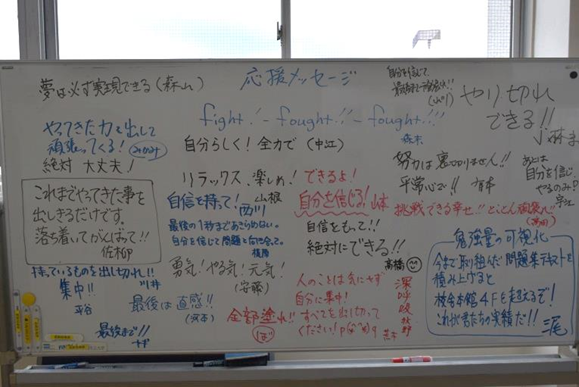 応援メッセージ
夢は必ず実現できる(森山)
fight!! - fought!! - fought!!!
自分を信じて
やり切れ
できる!!
やってきた力を出して
頑張ってくる!
絶対 大丈夫!
自分らしく!全力で(中江)
リラックス、楽しめ!
山根
できるよ!
努力は裏切りません!!
平常心で!!
あとは
自分を信じ
やるのみ
これまでやってきた事を
出しきるだけです。
落ち着いてがんばって!!
佐柳
自信を持て!
西川
自分を信じろ!
山本
挑戦できる幸せ!!
最後の1秒まであきらめない。
自分を信じて問題と向き合って。
自信をもって!!
絶対にできる!!
高橋
持っているものを出し切れ!!
集中!!
平谷
勇気!やる気!元気!
(安藤)
最後は直感!!
最後まで!!
全部塗れ!!
人のことは気にせず
自分に集中!
すべてを出し切って
ください!
深呼吸
勉強量の可視化
今まで取り組んだ問題集やテキスト
積み上げると
校舎本館4Fを超えるぞ!
これが君たちの実績だ!!